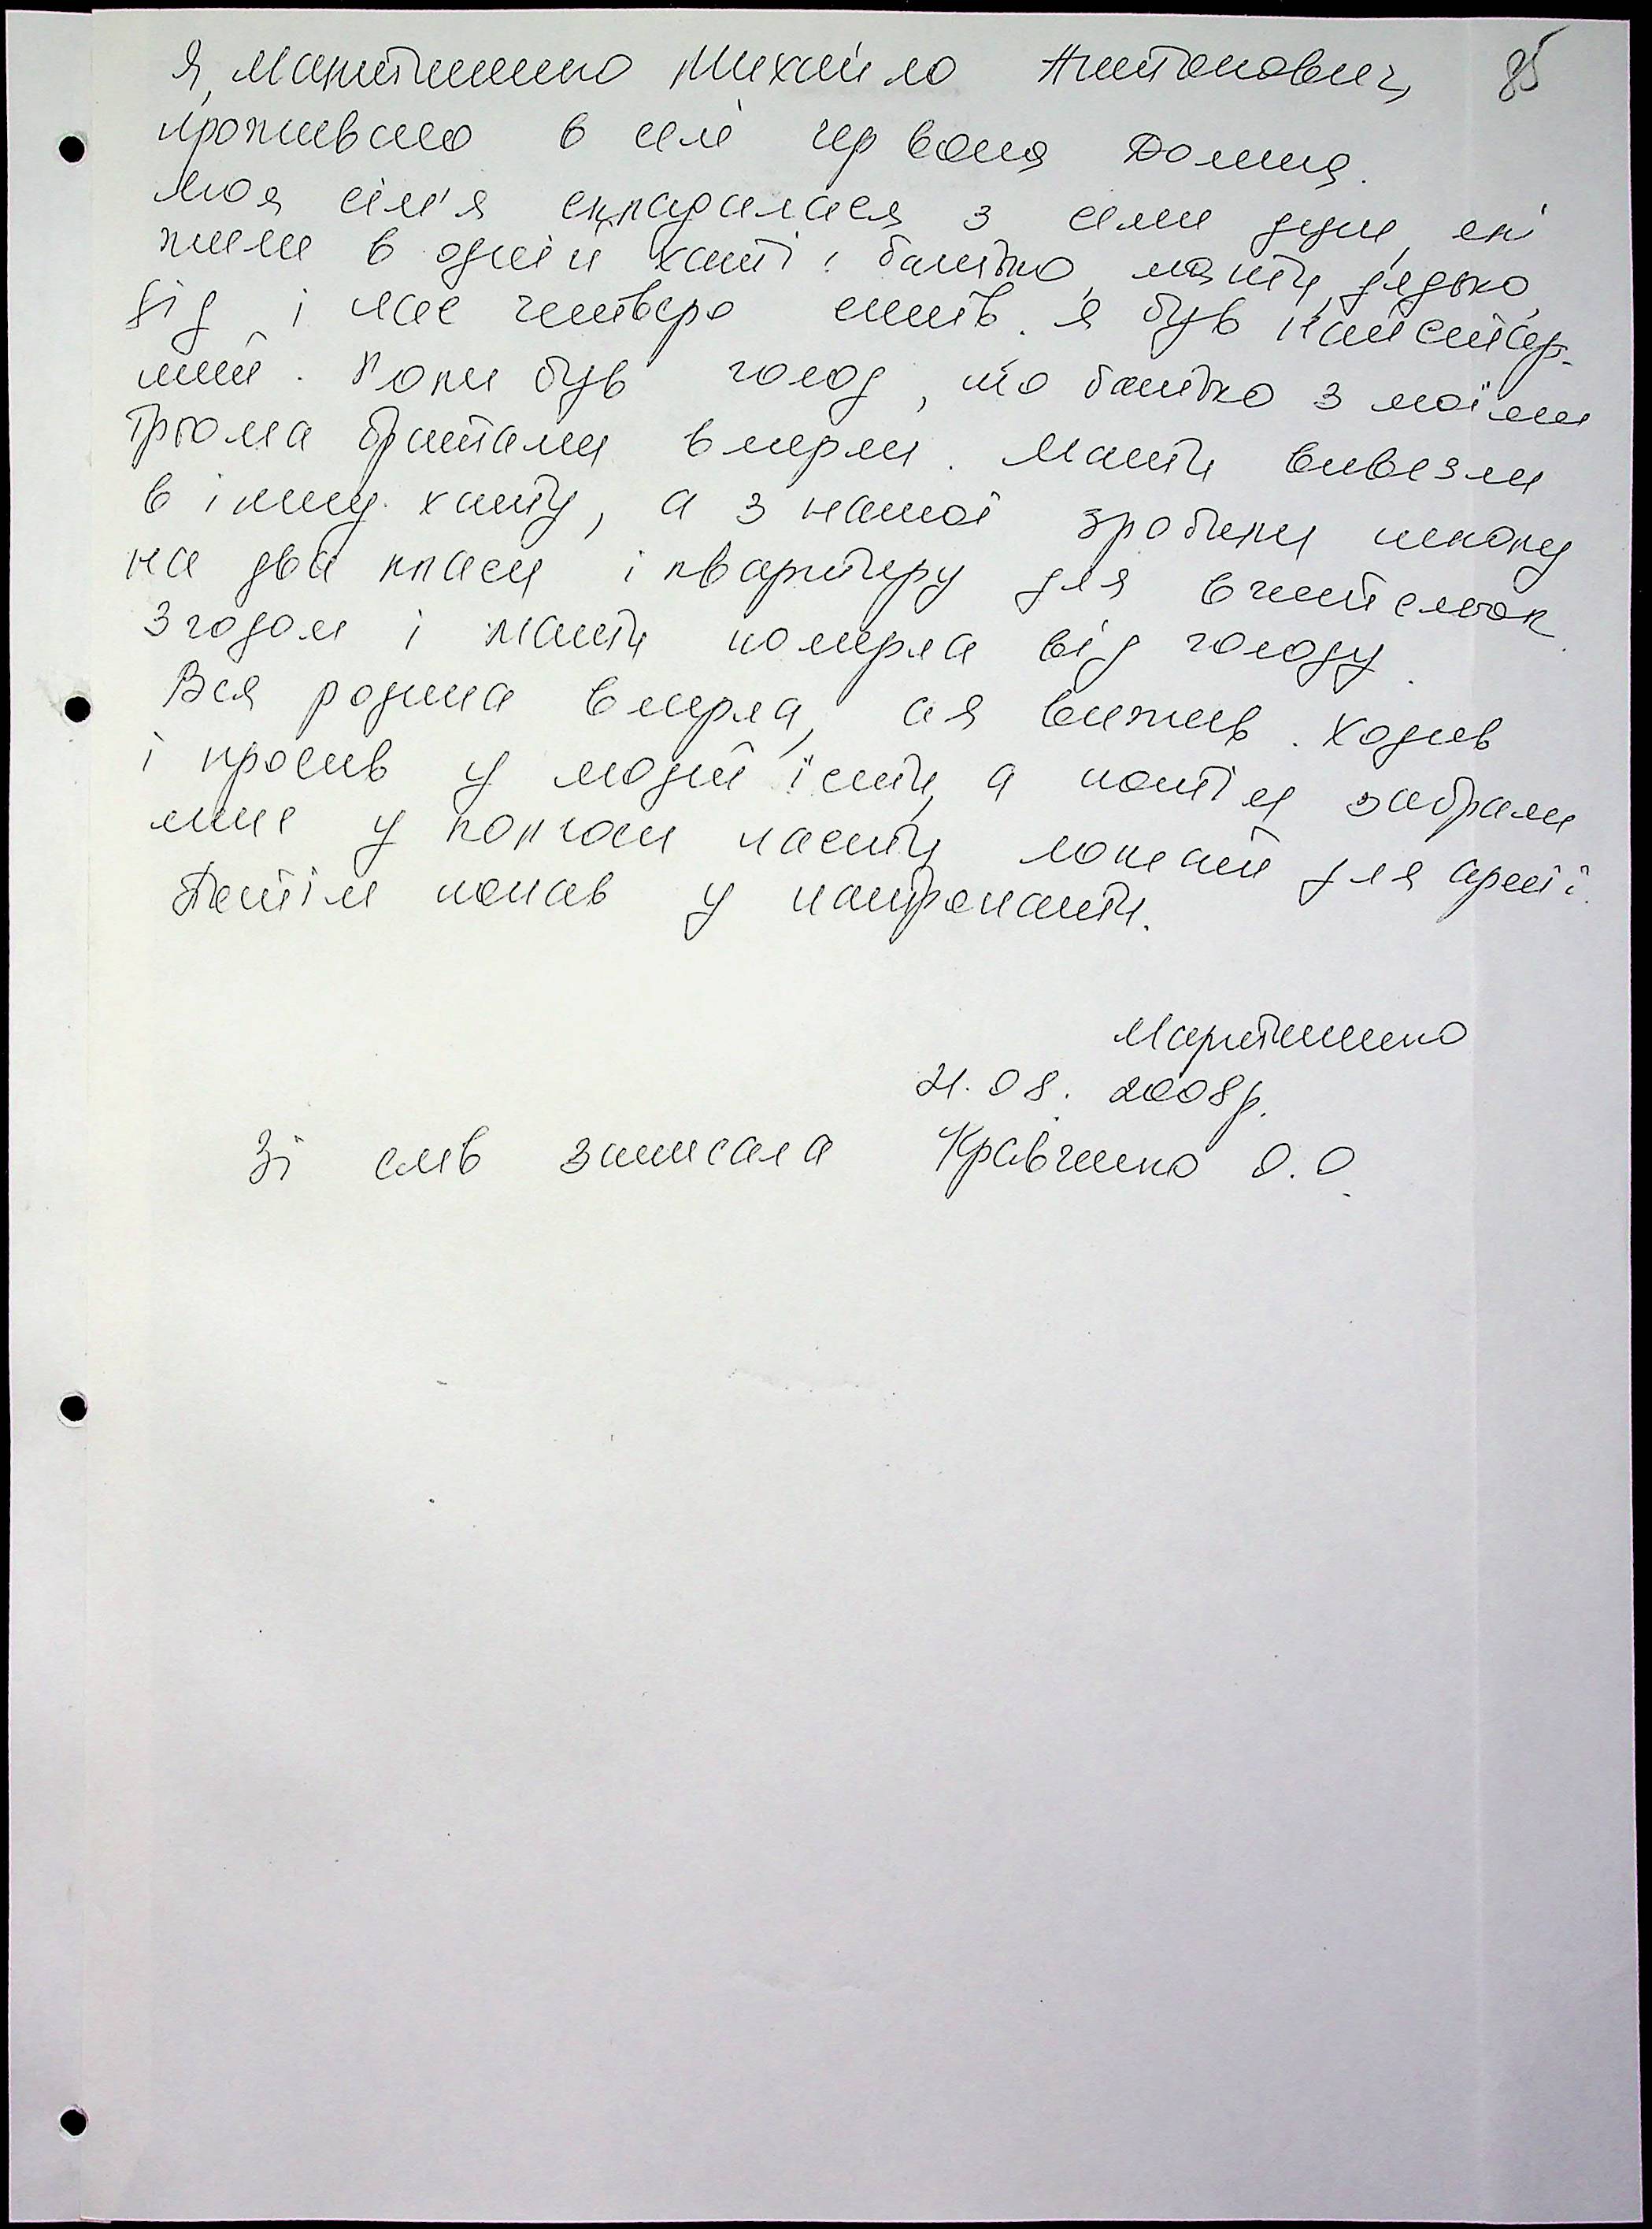 Я, Мартиненко Михайло Антонович, 85
проживаю в селі Червона Долина.
Моя сім'я складалася з семи душ, які
жили в одній хаті: батько, мати, дядько,
дід і нас четверо синів. Я був найстар-
ший. Коли був голод, то батько з моїми
трьома братами вмерли. Мати вивезли
в іншу хату, а з нашої зробили школу
на два класи і квартиру для вчительок.
Згодом і мати померла від голоду.
Вся родина вмерла, а я вижив. Ходив
і просив у людей їсти, а потім забрали
мене у колгосп пасти лошат для армії.
Потім попав у патронати.
Мартиненко
21.08.2008р.
Зі слів записала Кравченко О.О.